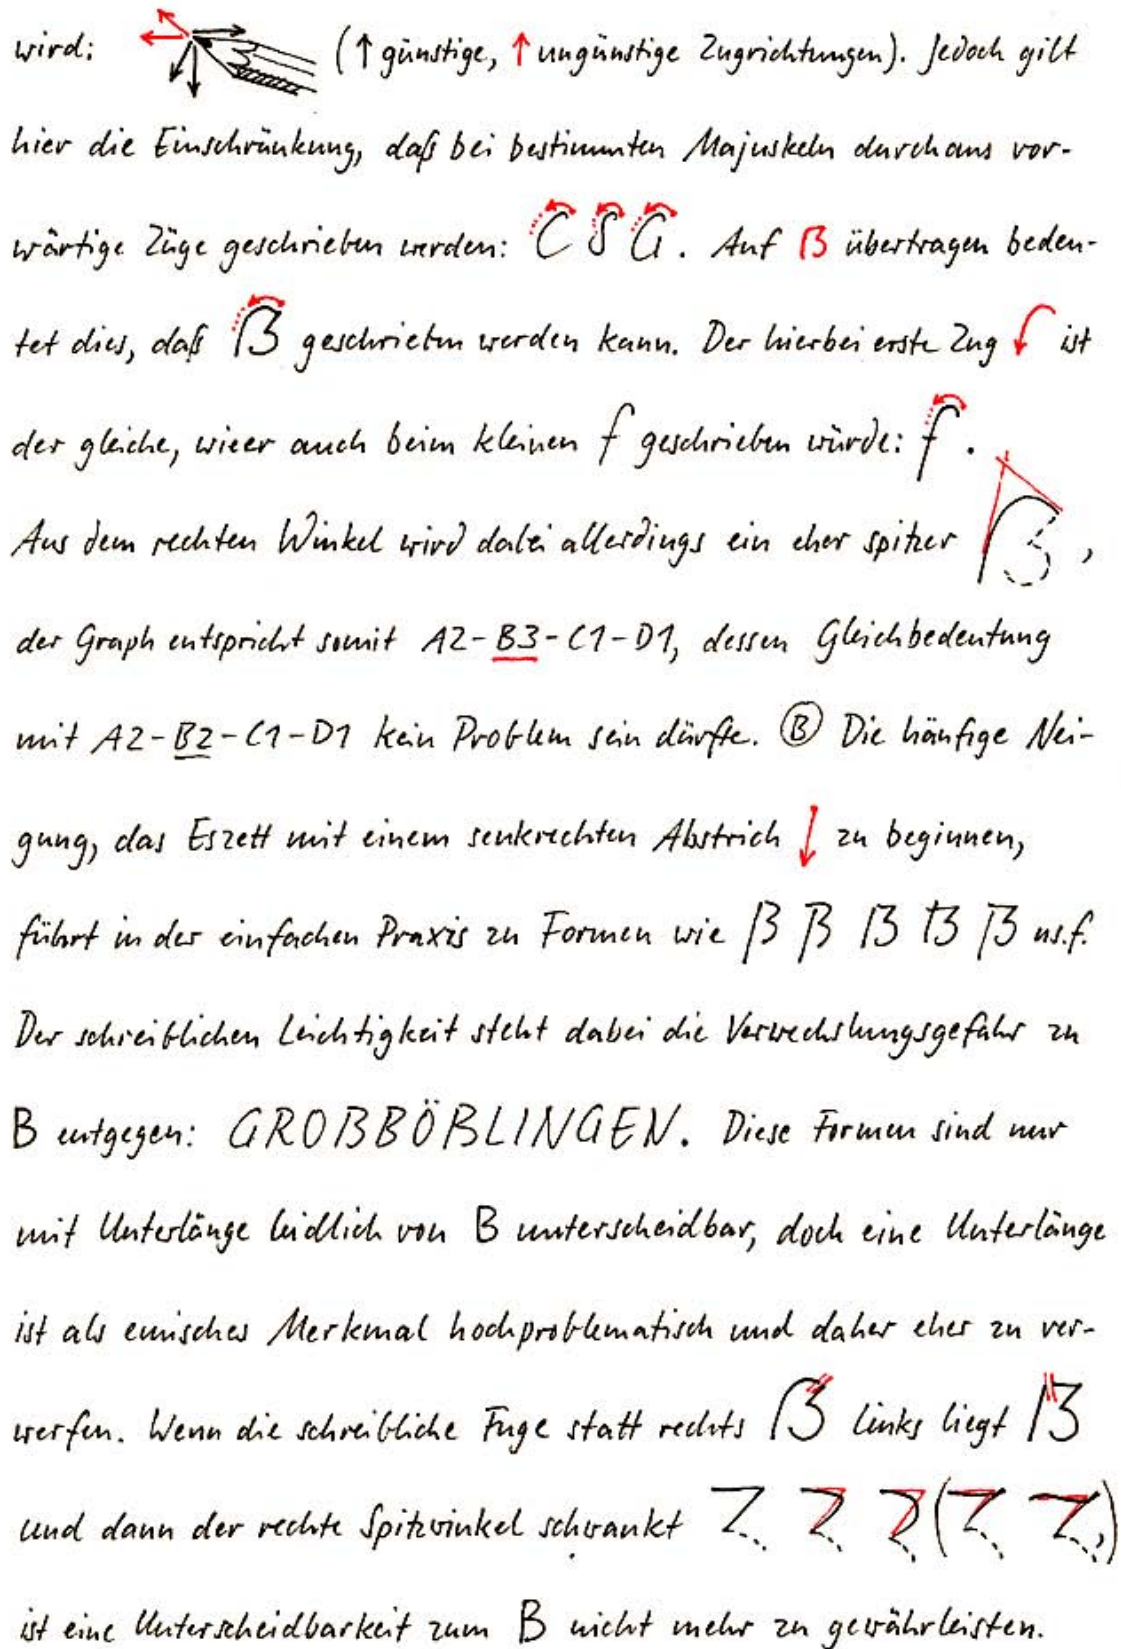 wird: (↑ günstige, ↑ ungünstige Zugrichtungen). Jedoch gilt
hier die Einschränkung, daß bei bestimmten Majuskeln durchaus vor-
wärtige Züge geschrieben werden: C S G. Auf ẞ übertragen bedeu-
tet dies, daß ẞ geschrieben werden kann. Der hierbei erste Zug ist
der gleiche, wie er auch beim kleinen f geschrieben würde: f.
Aus dem rechten Winkel wird dabei allerdings ein eher spitzer ẞ,
der Graph entspricht somit A2-B3-C1-D1, dessen Gleichbedeutung
mit A2-B2-C1-D1 kein Problem sein dürfte. Ⓑ Die häufige Nei-
gung, das Eszett mit einem senkrechten Abstrich ↓ zu beginnen,
führt in der einfachen Praxis zu Formen wie ẞ ẞ ẞ ẞ ẞ us.f.
Der schreiblichen Leichtigkeit steht dabei die Verwechslungsgefahr zu
B entgegen: GROẞBÖẞLINGEN. Diese Formen sind nur
mit Unterlänge leidlich von B unterscheidbar, doch eine Unterlänge
ist als emisches Merkmal hochproblematisch und daher eher zu ver-
werfen. Wenn die schreibliche Fuge statt rechts ẞ links liegt ẞ
und dann der rechte Spitzwinkel schwankt
ist eine Unterscheidbarkeit zum B nicht mehr zu gewährleisten.